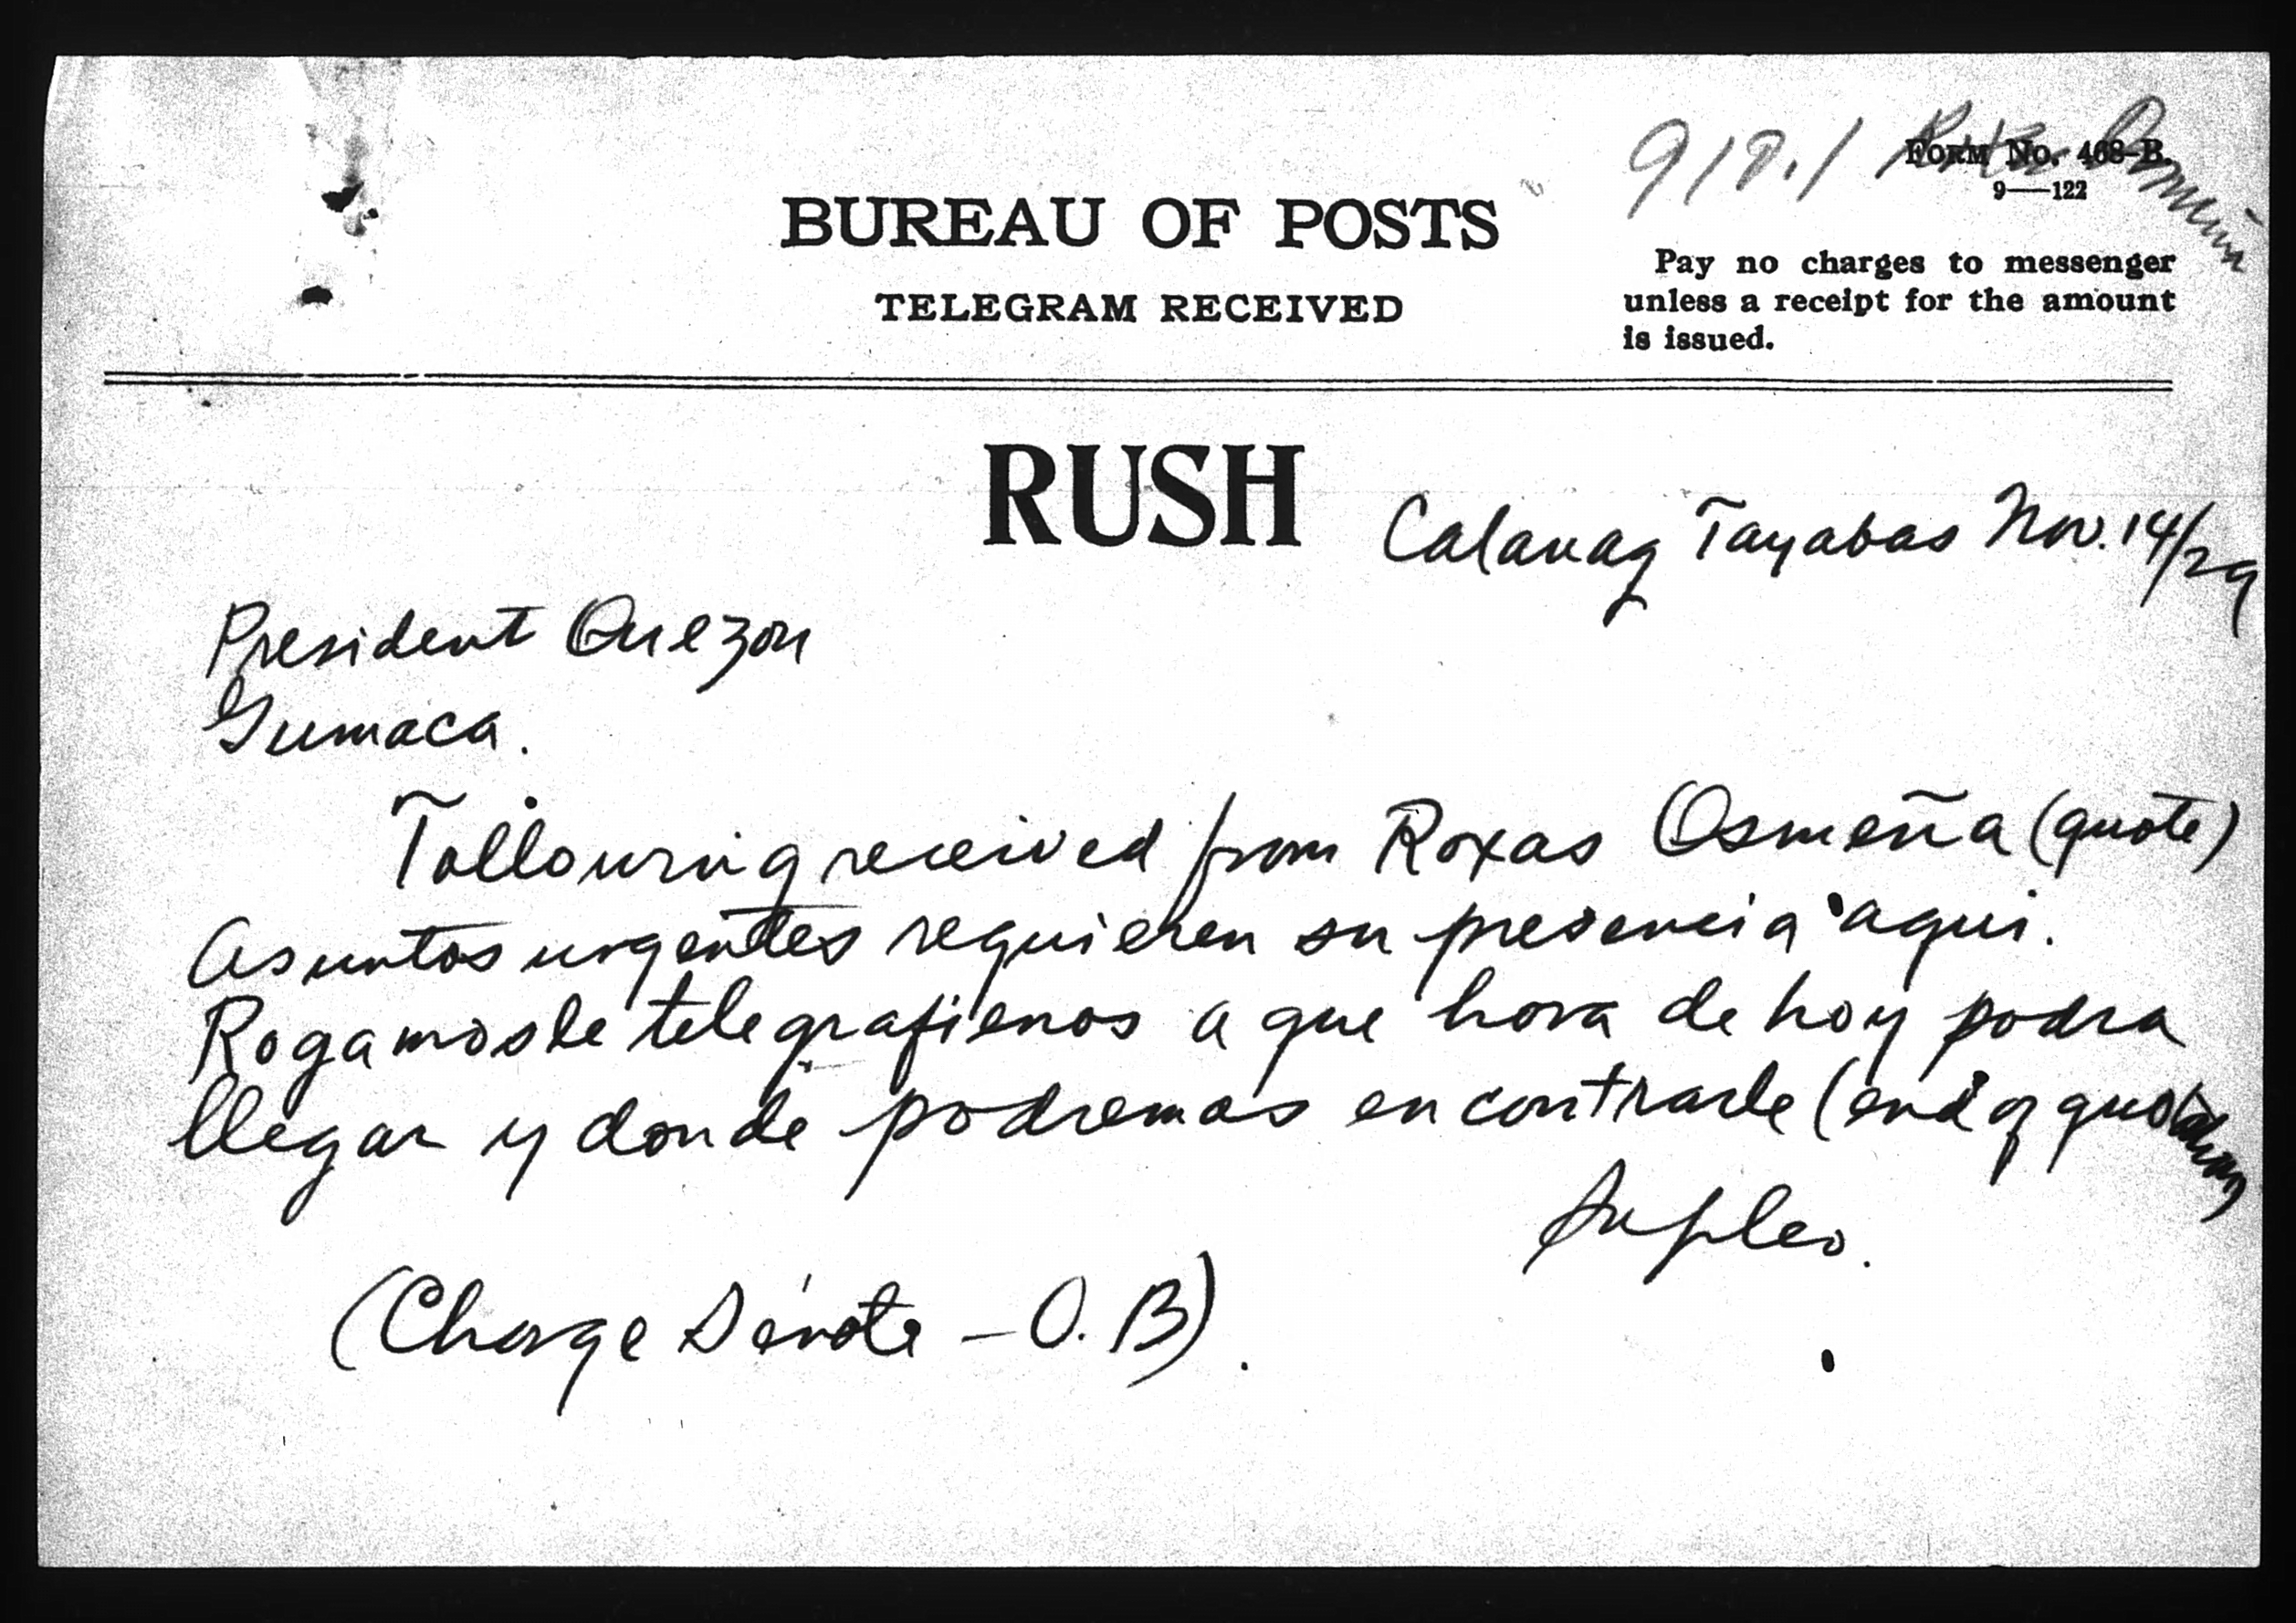 FORM NO. 468-B.
9—122
BUREAU OF POSTS
TELEGRAM RECEIVED
Pay no charges to messenger
unless a receipt for the amount
is issued.
RUSH
Calauag Tayabas Nov. 14/29
President Quezon
Gumaca.
Following received from Roxas Osmeña (quote)
Asuntos urgentes requieren su presencia aqui.
Rogamosle telegrafienos a que hora de hoy podra
llegar y donde podremos encontrarle (end of quotation)
(Charge Senate – O. B).